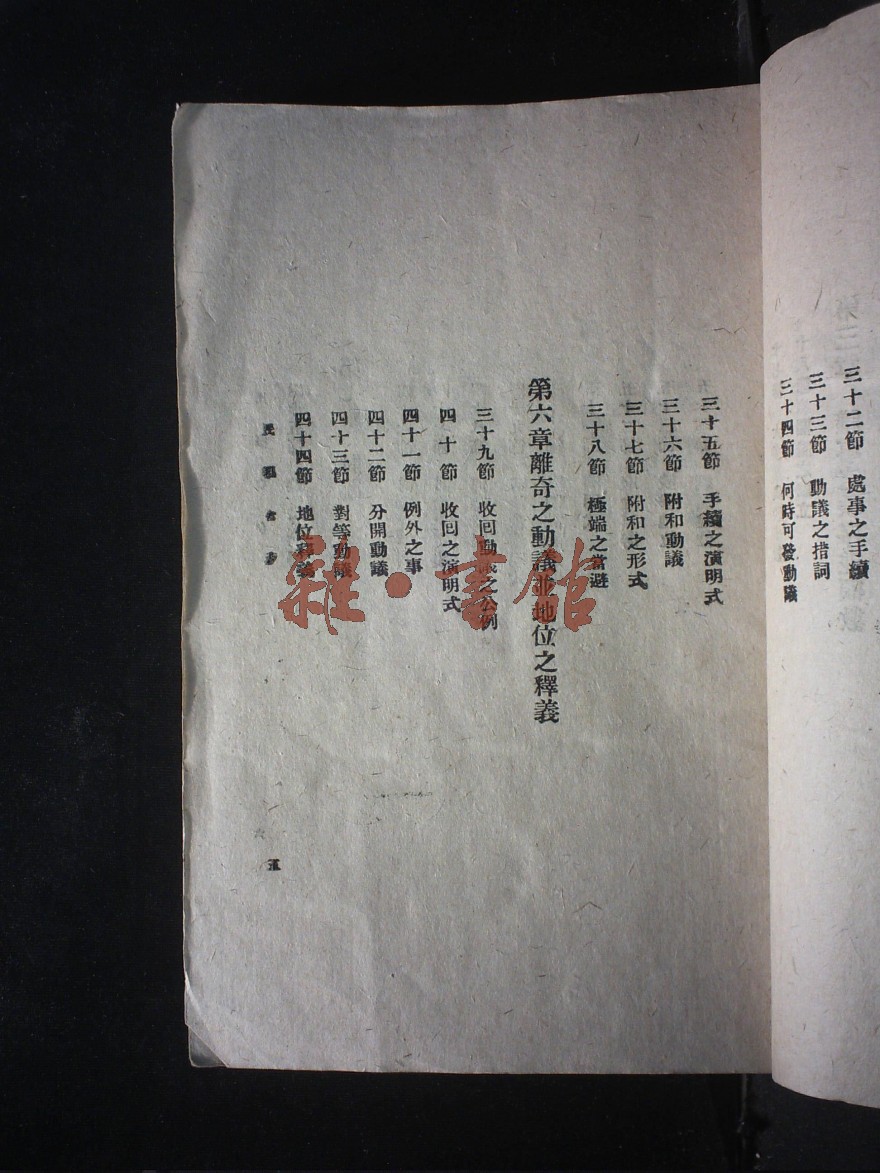 三十二節　處事之手續
三十三節　動議之措詞
三十四節　何時可發動議
三十五節　手續之演明式
三十六節　附和動議
三十七節　附和之形式
三十八節　極端之當避
第六章離奇之動議並地位之釋義
三十九節　收回動議之公例
四十節　收回之演明式
四十一節　例外之事
四十二節　分開動議
四十三節　對等動議
四十四節　地位釋義
五
雜·書館